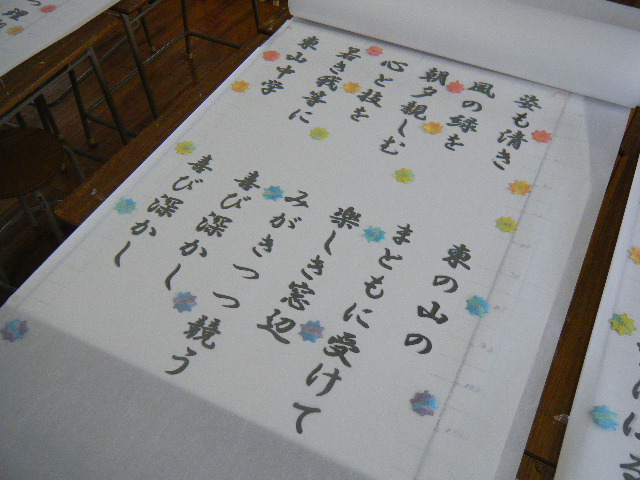 姿も清き　東の山の
風の緑を　まともに受けて
朝夕親しむ　楽しき窓辺
心と技を　みがきつつ競う
若き我等に　喜び深かし
東山中学　喜び深かし